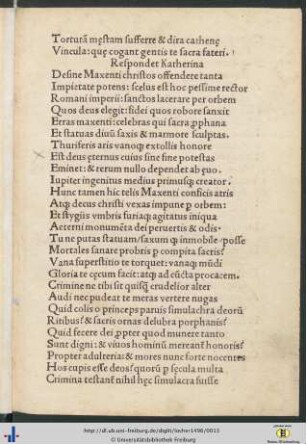 Torturã męstam sufferre & dira cathenę
Vincula: quę cogant gentis te sacra fateri.
Respondet Katherina
Desine Maxenti christos offendere tanta
Impietate potens: scelus est hoc pessime rector
Romani imperii: sanctos lacerare per orbem
Quos deus elegit: fidei quos robore sanxit
Erras maxenti: celebras qui sacra ꝓphana
Et statuas diuũ saxis & marmore sculptas.
Thuriferis aris vanoqꝫ extollis honore
Est deus ęternus cuius sine fine potestas
Eminet: & rerum nullo dependet ab ęuo.
Iupiter ingenitus medius primusqꝫ creator.
Hunc tamen hic telis Maxenti conficis atris
Atqꝫ decus christi vexas impune ꝑ orbem:
Et stygiis vmbris furiaqꝫ agitatus iniqua
Aeterni monumẽta dei peruertis & odis.
Tu ne putas statuam/saxum qꝫ inmobile posse
Mortales sanare probris ꝑ compita sacris?
Vana superstitio te torquet: vanaqꝫ mũdi
Gloria te cęcum facit: atqꝫ ad cũcta procacem.
Crimine ne tibi sit quisqꝫ crudelior alter
Audi nec pudeat te meras vertere nugas
Quid colis o princeps paruis simulachra deorũ
Ritibus? & sacris ornas delubra porphanis?
Quid fecere dei ꝓpter quod munere tanto
Sunt digni: & viuos hominũ merteant honoris?
Propter adulteria: & mores nunc forte nocentes
Hos cupis esse deos? quorũ ꝑ sęcula multa
Crimina testant nihil hęc simulacra fuisse
http://dl.ub.uni-freiburg.de/diglit/locher1496/0013
© Universitätsbibliothek Freiburg